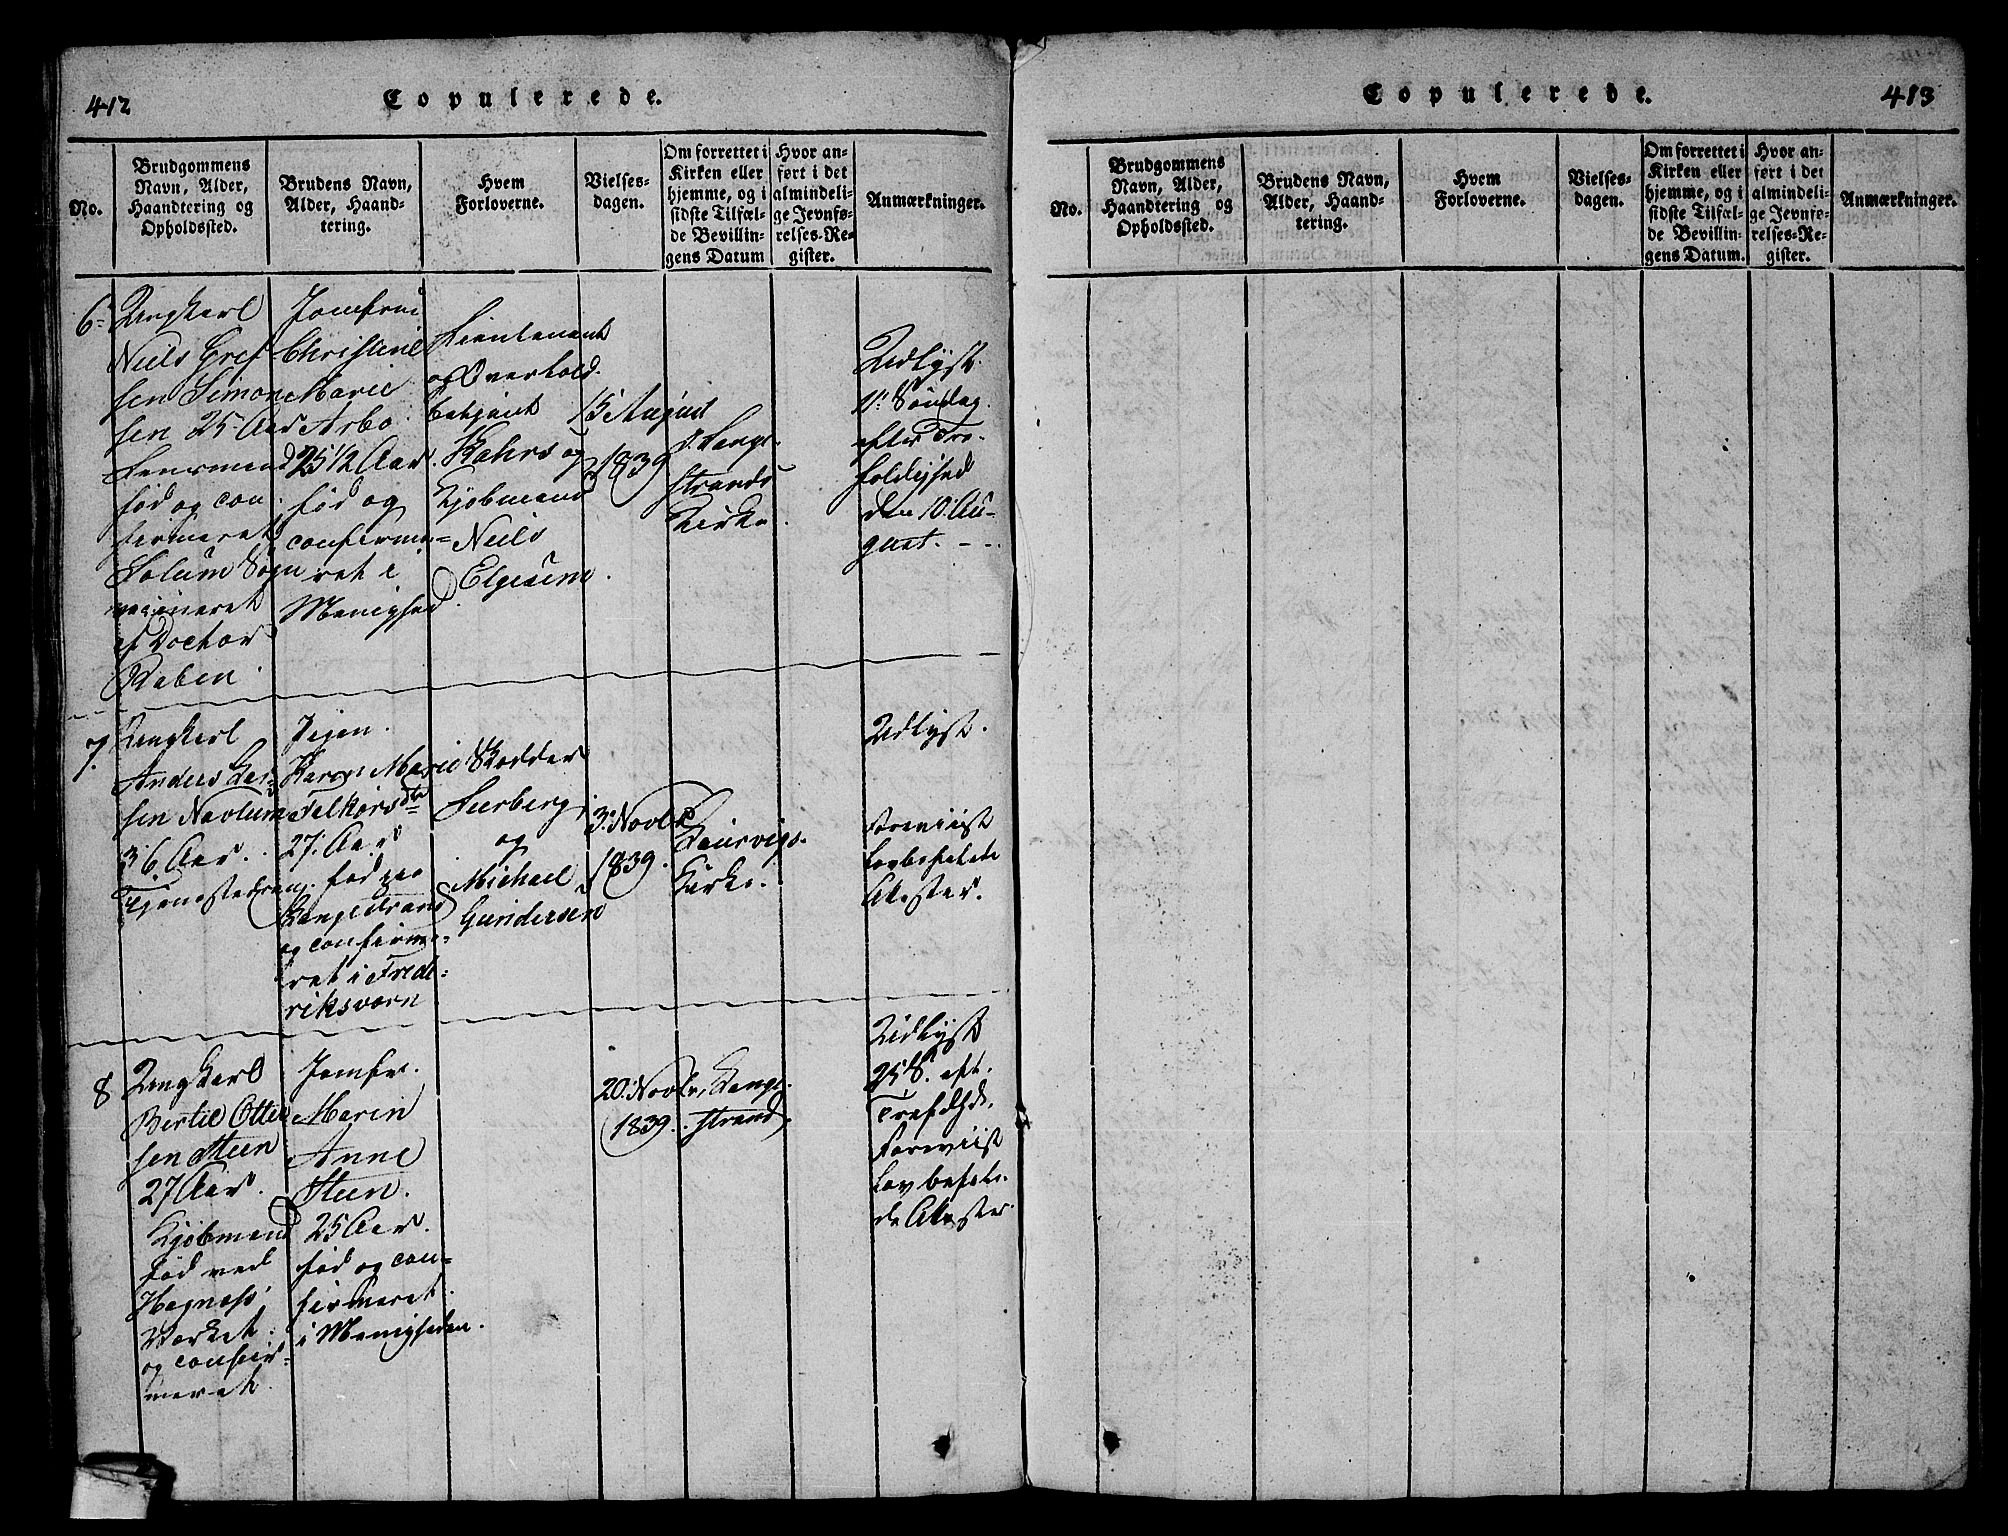 412
Copulerede.
No.
Brudgommens
Navn, Alder,
Haandtering og
Opholdssted.
Brudens Navn,
Alder, Haand-
tering.
Hvem
Forloverne.
Vielses-
dagen.
Om forrettet i
Kirken eller
hjemme, og i
sidste Tilfæl-
de Bevillin-
gens Datum
Hvor an-
ført i det
almindeli-
ge Jevnfø-
relses-Re-
gister.
Anmærkninger.
6
Ungkarl
Niels Gref
sen Simon
sen 25 Aar
Lensmand
fød og con
firmeret
Solum Sogn
vacineret
af Doctor
Raben
Jomfru
Christine
Marie
Arbo
25 1/2 Aar
fød og
confirme=
ret i
Menighed
Lieutenant
og Overtold
betjent
Kahrs og
Kjøbmand
Niels
Elgesem.
15 August
1839
i Lange
strands
Kirke.
Udlyst
11 Søndag
efter Tre-
foldighed
den 10 Au-
gust.
7
Ungkarl
Anders Lar
sen Navlum
36 Aar.
Tjenestedreng.
Pigen.
Karen Marie
Falkorsdtr
27 Aar
fød paa
Langestrand
og confirme=
ret i Fred=
riksværn
Skodder
Seeberg
og
Michael
Gundersen
3 Novbr
1839.
Laurvigs
Kirke.
Udlyst.
Foreviist
Lovbefalede
Attester.
8
Ungkarl
Bertil Otte
sen Steen
27 Aar.
Kjøbmand
fød ved
Hagnæss
Værket
og confir=
meret
Jomfr.
Maren
Anne
Steen.
25 Aar.
fød og con=
firmeret
i Menigheden.
20 Novbr.
1839.
Lange
strand.
Udlyst
25 S. eft.
Trefoldgh.
Foreviist
Lovbefale
de Attester.
Copulerede.
483
No.
Brudgommens
Navn, Alder,
Haandtering og
Opholdssted.
Brudens Navn,
Alder, Haand-
tering.
Hvem
Forloverne.
Vielses-
dagen.
Om forrettet i
Kirken eller
hjemme, og i
sidste Tilfæl-
de Bevillin-
gens Datum.
Hvor an-
ført i det
almindeli-
ge Jevnfø-
relses-Re-
gister.
Anmærkninger.